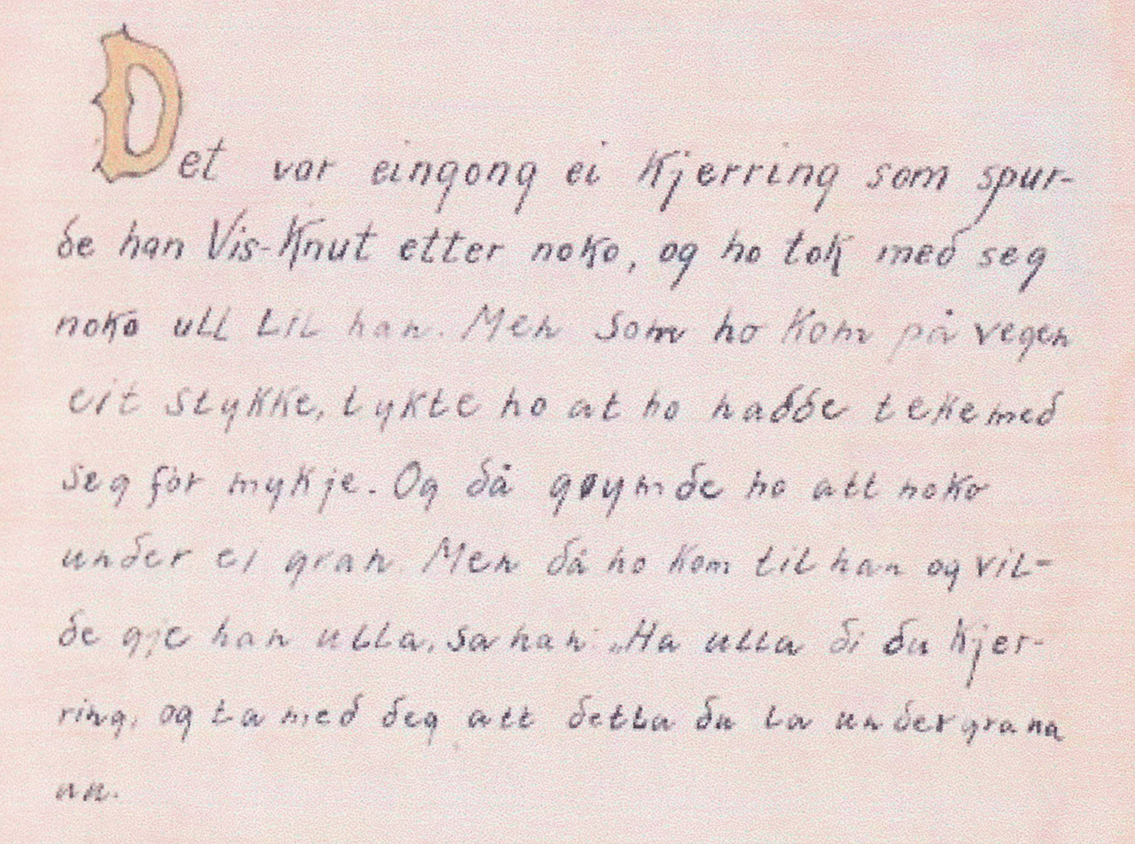 Det var eingong ei Kjerring som spur-
de han Vis-Knut etter noko, og ho tok med seg
noko ull til han. Men som ho kom på vegen
eit stykke, tykte ho at ho hadde teke med
seg for mykje. Og då gøymde ho att noko
under ei gran. Men då ho kom til han og vil-
de gje han ulla, sa han: „Ha ulla di du Kjer-
ring, og ta med deg att detta du la under grana
an.